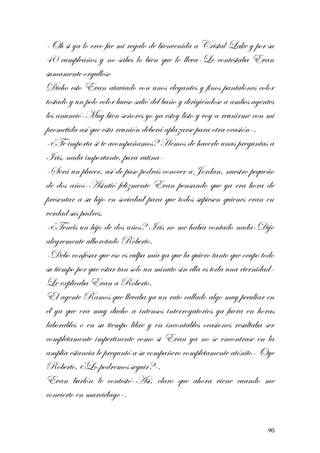 -Oh si ya lo creo fue mi regalo de bienvenida a Cristal Lake y por su
40 cumpleaños y no sabes lo bien que lo lleva-Le contestaba Evan
sumamente orgulloso
Dicho esto Evan ataviado con unos elegantes y finos pantalones color
tostado y un polo color hueso salió del baño y dirigiéndose a ambos agentes
les anunció-Muy bien señores yo ya estoy listo y voy a reunirme con mi
prometida así que esta reunión deberá aplazarse para otra ocasión-.
-¿Te importa si te acompañamos? Hemos de hacerle unas preguntas a
Iris, nada importante, pura rutina-
-Será un placer, así de paso podréis conocer a Jordan, nuestro pequeño
de dos años-Asintió felizmente Evan pensando que ya era hora de
presentar a su hijo en sociedad para que todos supiesen quienes eran en
verdad sus padres.
-¿Tenéis un hijo de dos años? Iris no me había contado nada-Dijo
alegremente alborotado Roberto.
-Debo confesar que eso es culpa mía ya que la quiero tanto que ocupo todo
su tiempo por que estar tan solo un minuto sin ella es toda una eternidad-
Le explicaba Evan a Roberto.
El agente Ramos que llevaba ya un rato callado algo muy peculiar en
él ya que era muy ducho a intensos interrogatorios ya fuera en horas
laborables o en su tiempo libre y en incontables ocasiones resultaba ser
completamente impertinente como si Evan ya no se encontrase en la
amplia estancia le preguntó a su compañero completamente atónito- Oye
Roberto, ¿Lo podremos seguir?-.
Evan burlón le contestó-Así, claro que ahora viene cuando me
convierto en murciélago-.
90